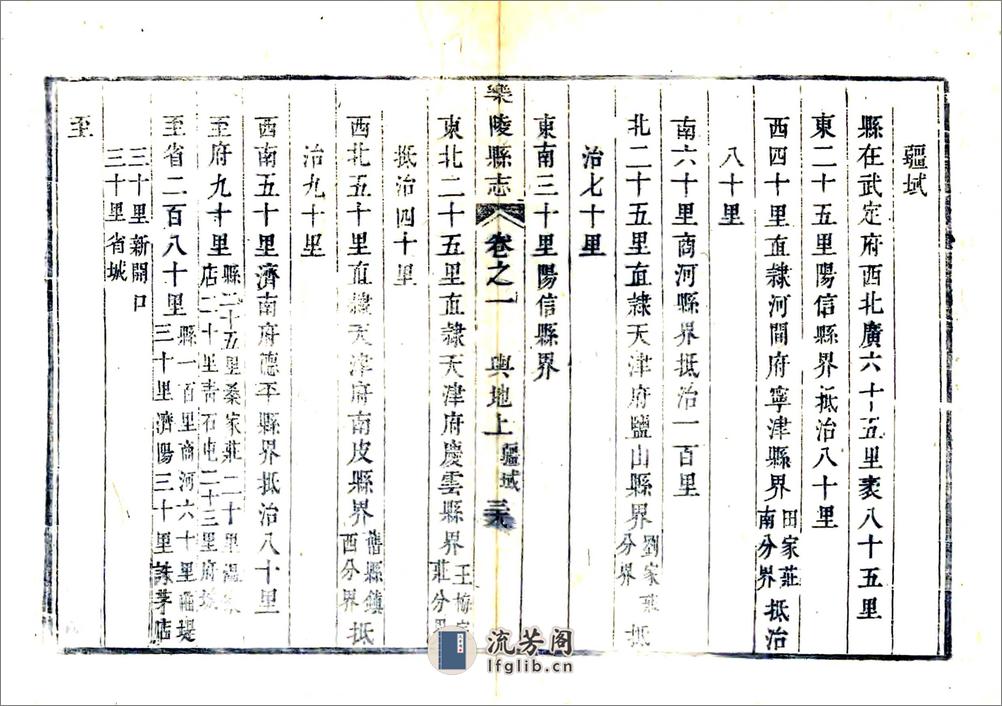 疆域
縣在武定府西北廣六十五里袤八十五里
東二十五里陽信縣界抵治八十里
西四十里直隸河間府寧津縣界田家莊南分界抵治
八十里
南六十里商河縣界抵治一百里
北二十五里直隸天津府鹽山縣界劉家莊分界抵
治七十里
東南三十里陽信縣界
樂陵縣志 卷之一 輿地上 疆域
東北二十五里直隸天津府慶雲縣界王 莊分
抵治四十里
西北五十里直隸天津府南皮縣界舊縣鎮西分界抵
治九十里
西南五十里濟南府德平縣界抵治八十里
至府九十里縣二十五里桑家莊二十里 店二十里靑石屯二十三里府城
至省二百八十里縣一百里商河六十里 堤三十里濟陽三十里 茅店
三十里新開口三十里省城
至
流芳阁
lfglib.cn